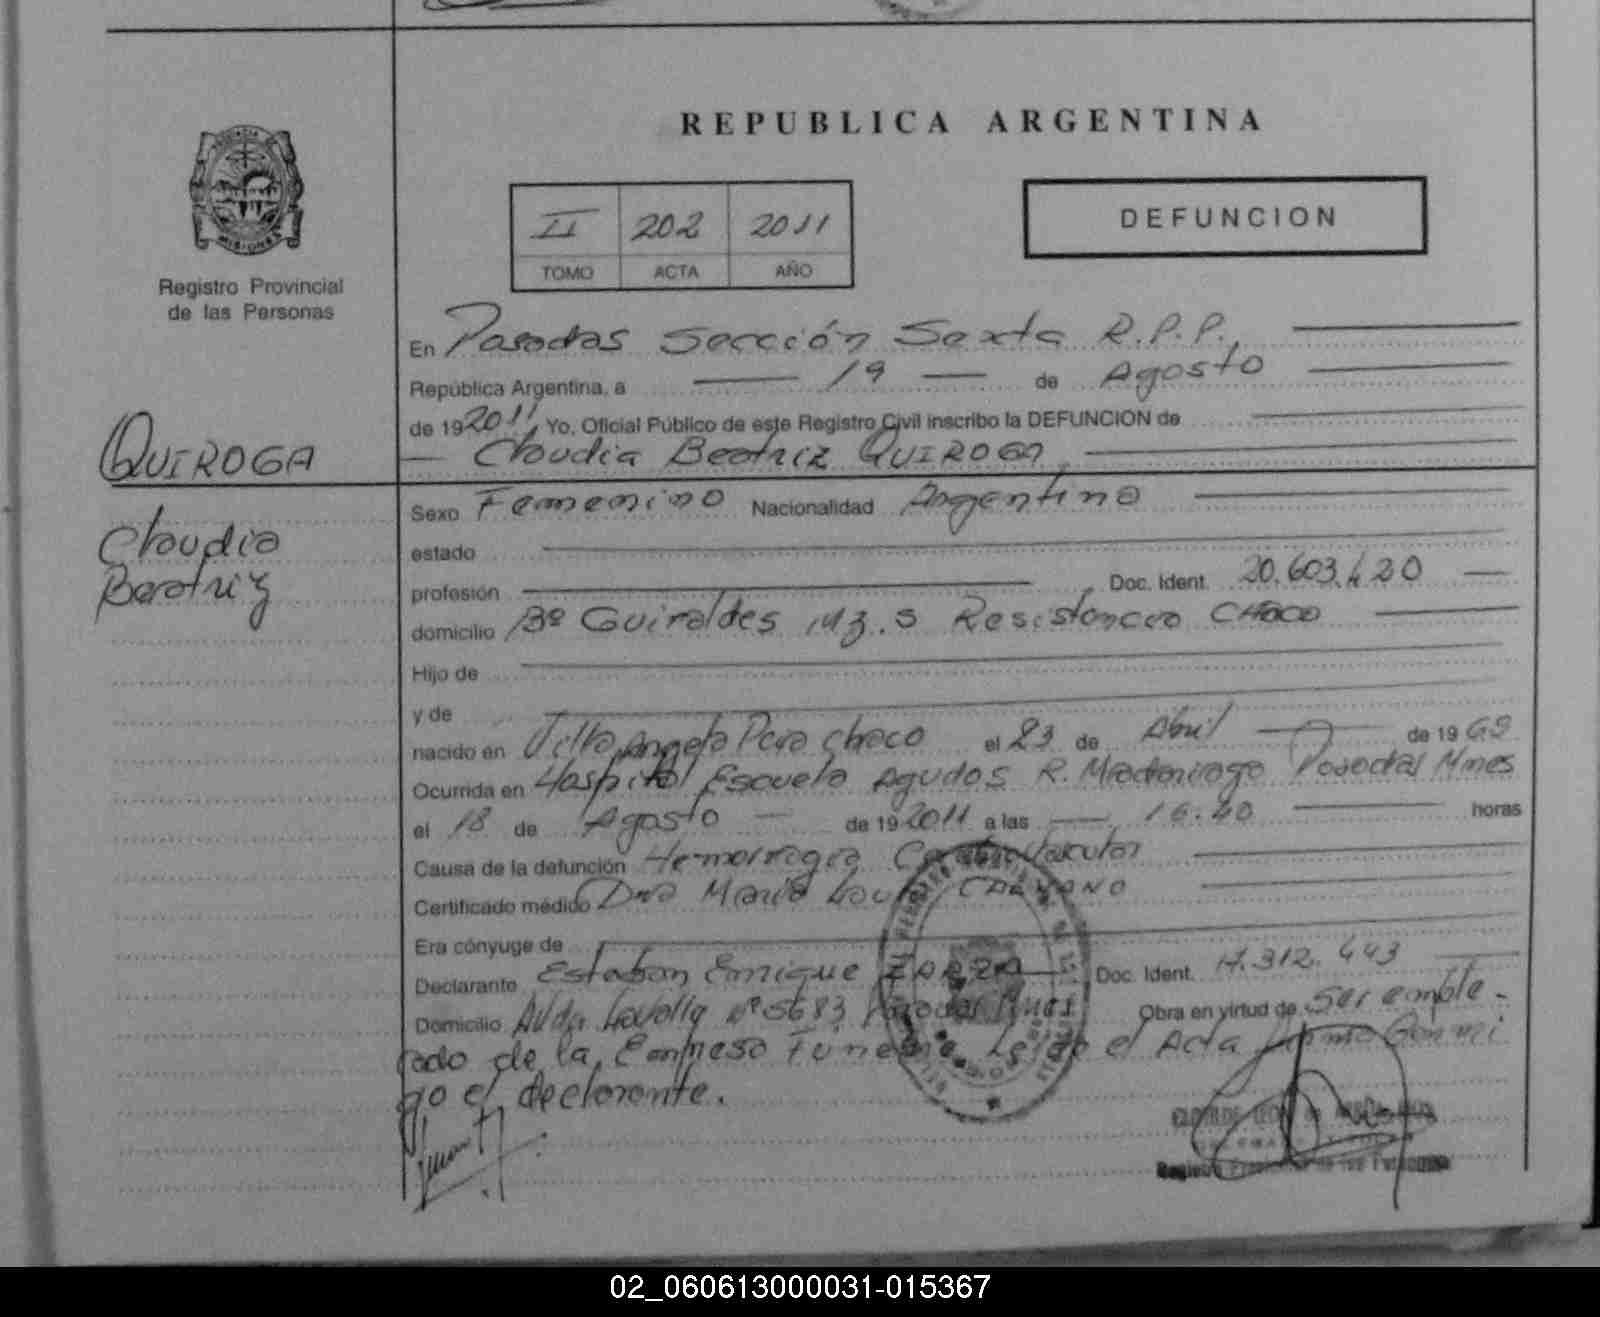 REPUBLICA ARGENTINA
II 202 2011
TOMO ACTA AÑO
DEFUNCION
MISIONES
Registro Provincial
de las Personas
En Posadas Sección Sexta R.P.P.
República Argentina, a 19 de Agosto
de 19 2011 Yo, Oficial Público de este Registro Civil inscribo la DEFUNCION de
Claudia Beatriz QUIROGA
QUIROGA
Claudia
Beatriz
Sexo Femenino Nacionalidad Argentina
estado
profesión Doc. Ident. 20.603.420
domicilio Bº Guiraldes Mz. 5 Resistencia CHACO
Hijo de
y de
nacido en Villa Angela Pcia Chaco el 23 de Abril de 19 69
Ocurrida en Hospital Escuela Agudos R. Madariaga Posadas Mnes
el 18 de Agosto de 19 2011 a las 16.40 horas
Causa de la defunción Hemorragia Cerebrovascular
Certificado médico Dra Maria Laura
Era cónyuge de
Declarante Esteban Enrique ZARZA Doc. Ident. 17.312.443
Domicilio Avda Lavalle Nº 5683 Posadas Mnes Obra en virtud de ser emple-
ado de la Empresa Funebre Leido el Acta firma Conmi
go el declarante.
Registro Provincial de las Personas
02_060613000031-015367